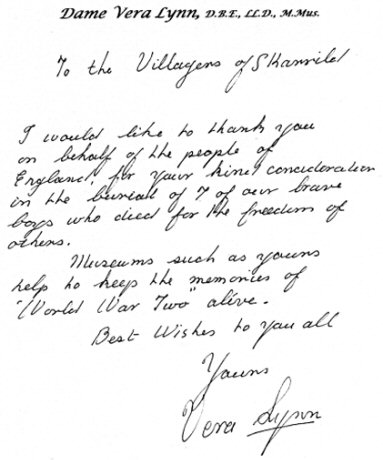 Dame Vera Lynn, D.B.E., LL.D., M.Mus.
To the Villagers of Skarrild
I would like to thank you
on behalf of the people of
England, for your kind concideration
in the burial of 7 of our brave
boys who died for the freedom of
others.
Museums such as yours
help to keep the memories of
"World War Two" alive.
Best Wishes to you all
Yours
Vera Lynn